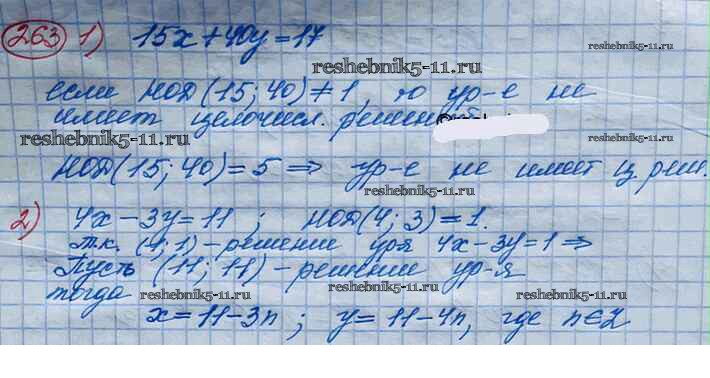 263 1) 15x + 40y = 17
reshebnik5-11.ru
если НОД (15; 40) ≠ 1, то ур-е не
reshebnik5-11.ru
имеет целочисл. решений
reshebnik5-11.ru
НОД (15; 40) = 5 ⇒ ур-е не имеет ц. реш.
reshebnik5-11.ru
2) 4x - 3y = 11 ; НОД (4; 3) = 1.
reshebnik5-11.ru
т.к. (1; 1) - решение ур-я 4x - 3y = 1 ⇒
Пусть (11; 11) - решение ур-я
reshebnik5-11.ru reshebnik5-11.ru reshebnik5-11.ru
тогда
x = 11 - 3n ; y = 11 - 4n, где n ∈ Z